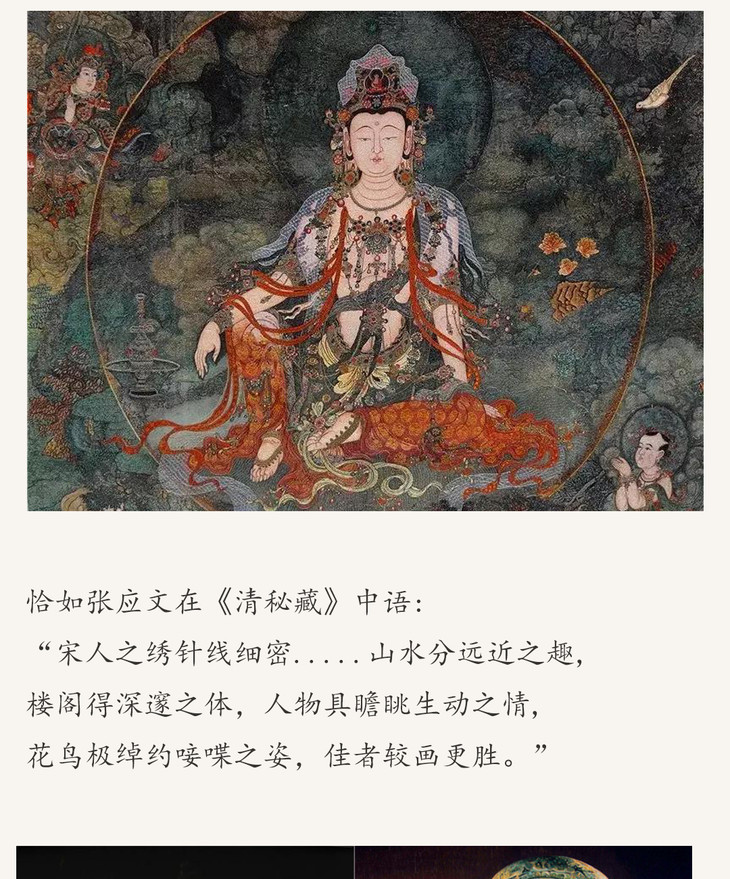 恰如张应文在《清秘藏》中语：
“宋人之绣针线细密.....山水分远近之趣，
楼阁得深邃之体，人物具瞻眺生动之情，
花鸟极绰约唼喋之姿，佳者较画更胜。”